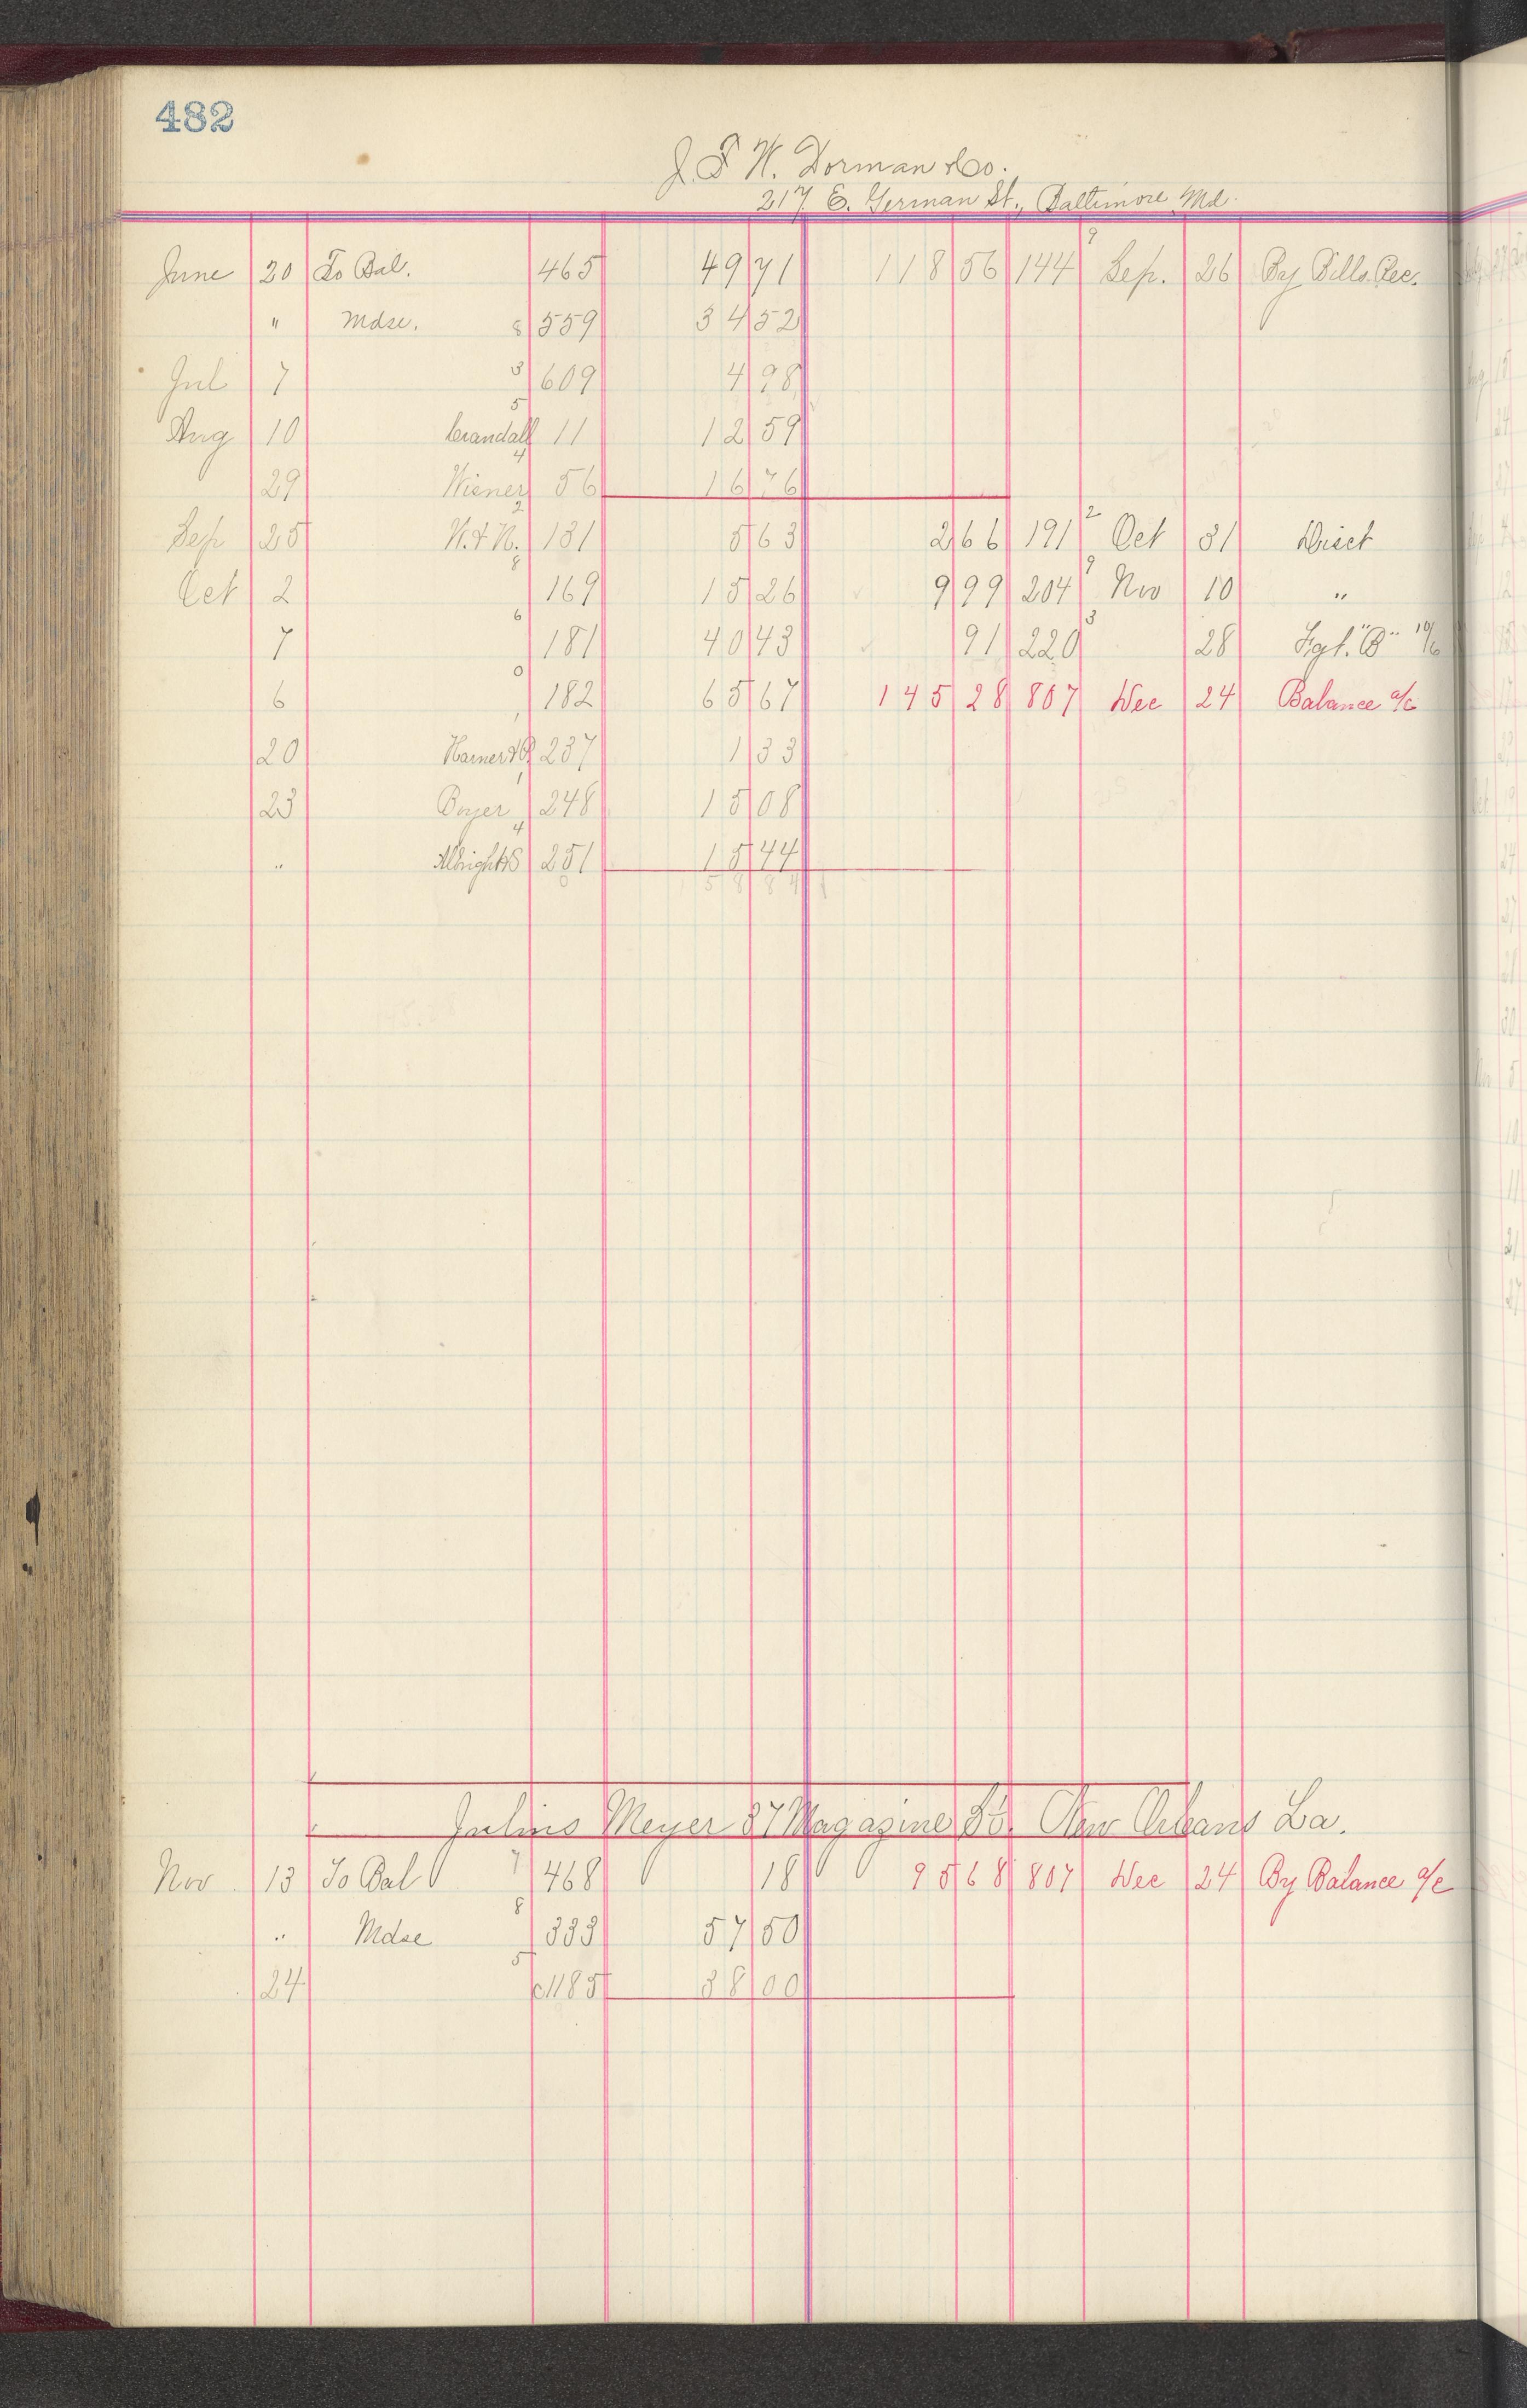 482
J. F. W. Dorman & Co.
217 E. German St., Baltimore Md.
June 20 To Bal. 465 49 71 118 56 144 9 Sep. 26 By Bills Rec.
" Mdse. 8 559 34 52
Jul 7 3 609 4 98
Aug 10 Crandall 5 11 12 59
29 Wiener 4 56 16 76
Sep 25 W. & N. 2 131 5 63 2 66 191 2 Oct 31 Disct
Oct 2 8 169 15 26 9 99 204 9 Nov 10 "
7 6 181 40 43 91 220 3 28 Fgt. "B" 10/6
6 0 182 65 67 145 28 807 Dec 24 Balance a/c
20 237 1 33
23 Boyer 1 248 15 08
" 4 251 15 44
0 58 84
Julius Meyer 37 Magazine St. New Orleans La.
Nov 13 To Bal 7 468 18 95 68 807 Dec 24 By Balance a/c
" Mdse 8 333 57 50
24 5 c1185 38 00